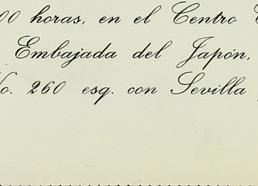 00 horas, en el Centro
Embajada del Japón,
No. 260 esq. con Sevilla